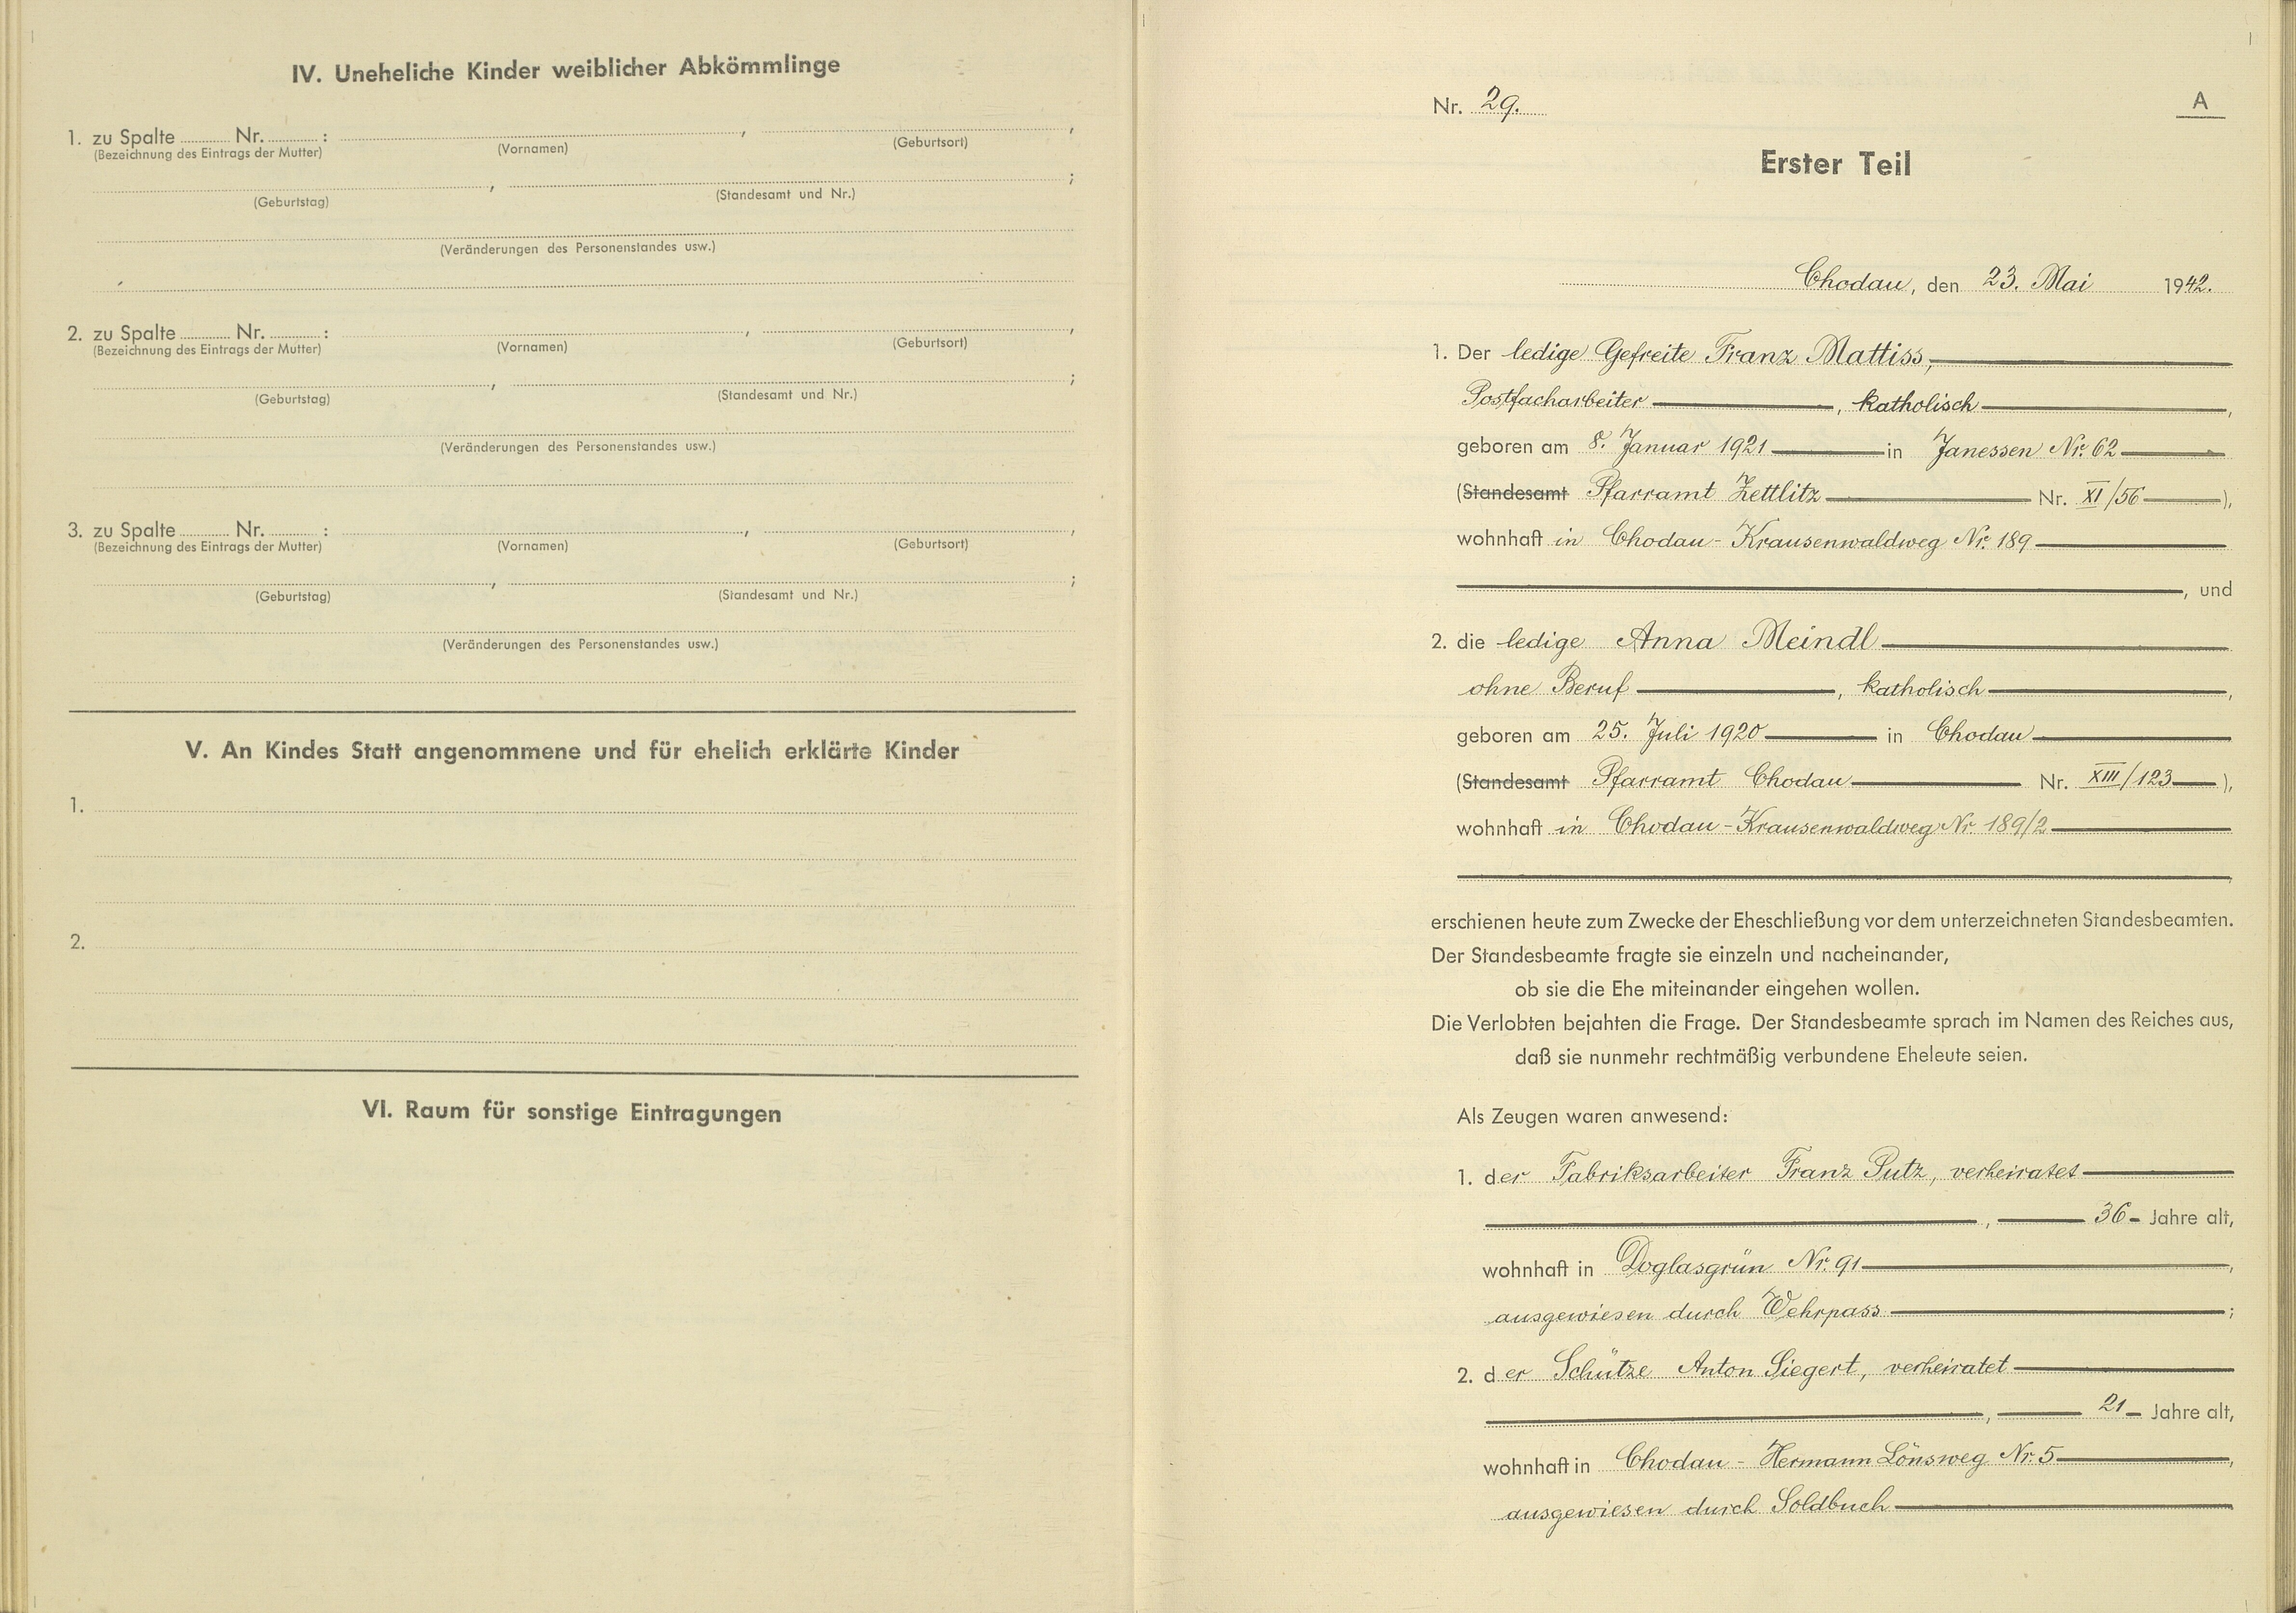 IV. Uneheliche Kinder weiblicher Abkömmlinge
1. zu Spalte ........ Nr. ........ : ........ , ........ ,
(Bezeichnung des Eintrags der Mutter) (Vornamen) (Geburtsort)
........ , ........ ;
(Geburtstag) (Standesamt und Nr.)
(Veränderungen des Personenstandes usw.)
2. zu Spalte ........ Nr. ........ : ........ , ........ ,
(Bezeichnung des Eintrags der Mutter) (Vornamen) (Geburtsort)
........ , ........ ;
(Geburtstag) (Standesamt und Nr.)
(Veränderungen des Personenstandes usw.)
3. zu Spalte ........ Nr. ........ : ........ , ........ ,
(Bezeichnung des Eintrags der Mutter) (Vornamen) (Geburtsort)
........ , ........ ;
(Geburtstag) (Standesamt und Nr.)
(Veränderungen des Personenstandes usw.)
V. An Kindes Statt angenommene und für ehelich erklärte Kinder
1.
2.
VI. Raum für sonstige Eintragungen
Nr. 29. A
Erster Teil
Chodau, den 23. Mai 1942.
1. Der ledige Gefreite Franz Mattiss,
Postfacharbeiter, katholisch,
geboren am 8. Januar 1921 in Janessen Nr. 62
(Standesamt Pfarramt Zettlitz Nr. XI/56),
wohnhaft in Chodau-Krausenwaldweg Nr. 189
, und
2. die ledige Anna Meindl
ohne Beruf, katholisch,
geboren am 25. Juli 1920 in Chodau
(Standesamt Pfarramt Chodau Nr. XIII/123),
wohnhaft in Chodau-Krausenwaldweg Nr. 189/2
,
erschienen heute zum Zwecke der Eheschließung vor dem unterzeichneten Standesbeamten.
Der Standesbeamte fragte sie einzeln und nacheinander,
ob sie die Ehe miteinander eingehen wollen.
Die Verlobten bejahten die Frage. Der Standesbeamte sprach im Namen des Reiches aus,
daß sie nunmehr rechtmäßig verbundene Eheleute seien.
Als Zeugen waren anwesend:
1. der Fabriksarbeiter Franz Putz, verheiratet
, 36 Jahre alt,
wohnhaft in Doglasgrün Nr. 91,
ausgewiesen durch Wehrpass;
2. der Schütze Anton Siegert, verheiratet
, 21 Jahre alt,
wohnhaft in Chodau - Hermann Lönsweg Nr. 5,
ausgewiesen durch Soldbuch